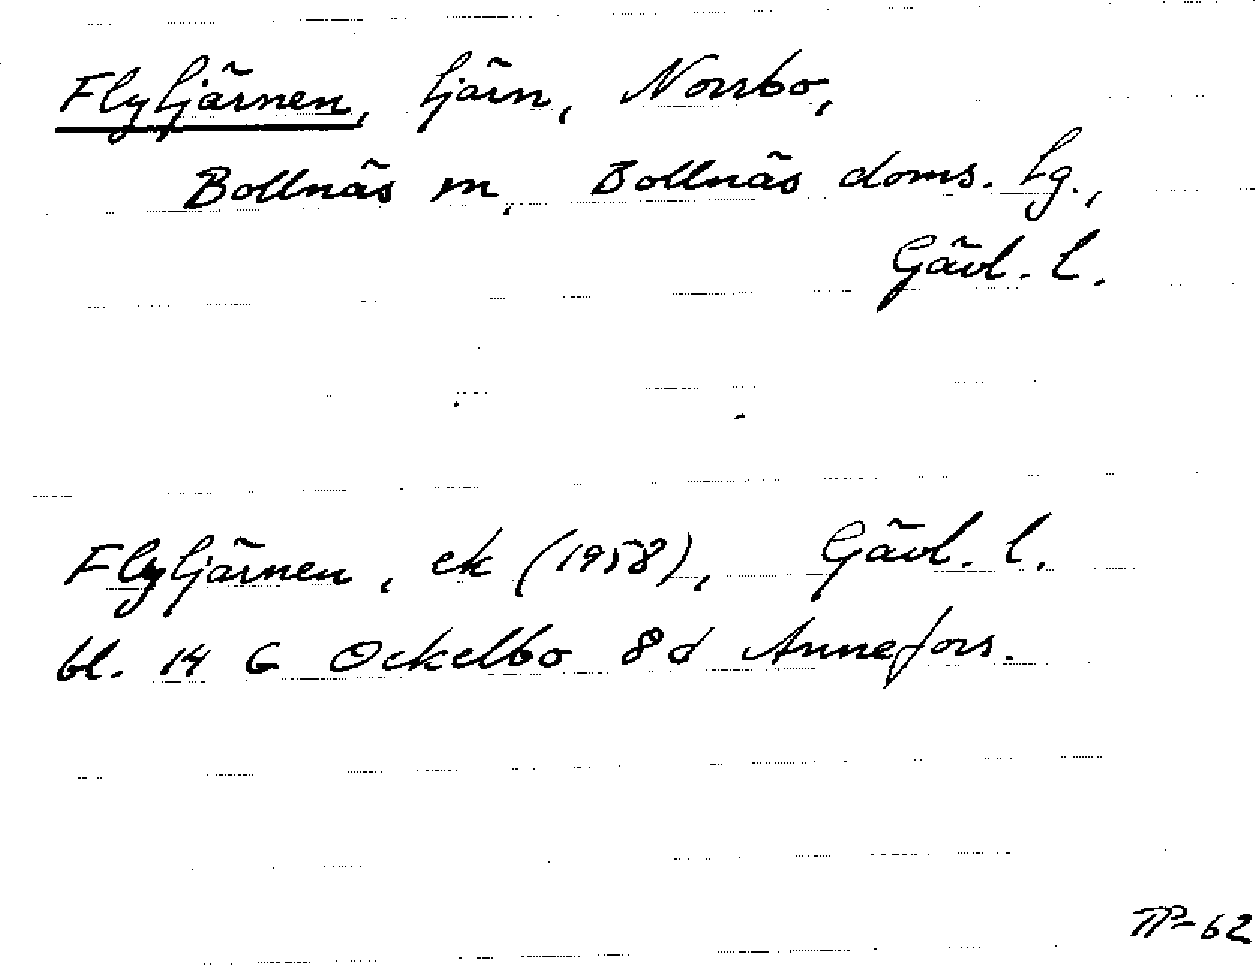 Flytjärnen, tjärn, Norrbo,
Bollnäs m, Bollnäs doms. tg.,
Gävl. l.
Flytjärnen, ek (1958), Gävl. l.
bl. 14 G Ockelbo 8d Annefors.
TP-62